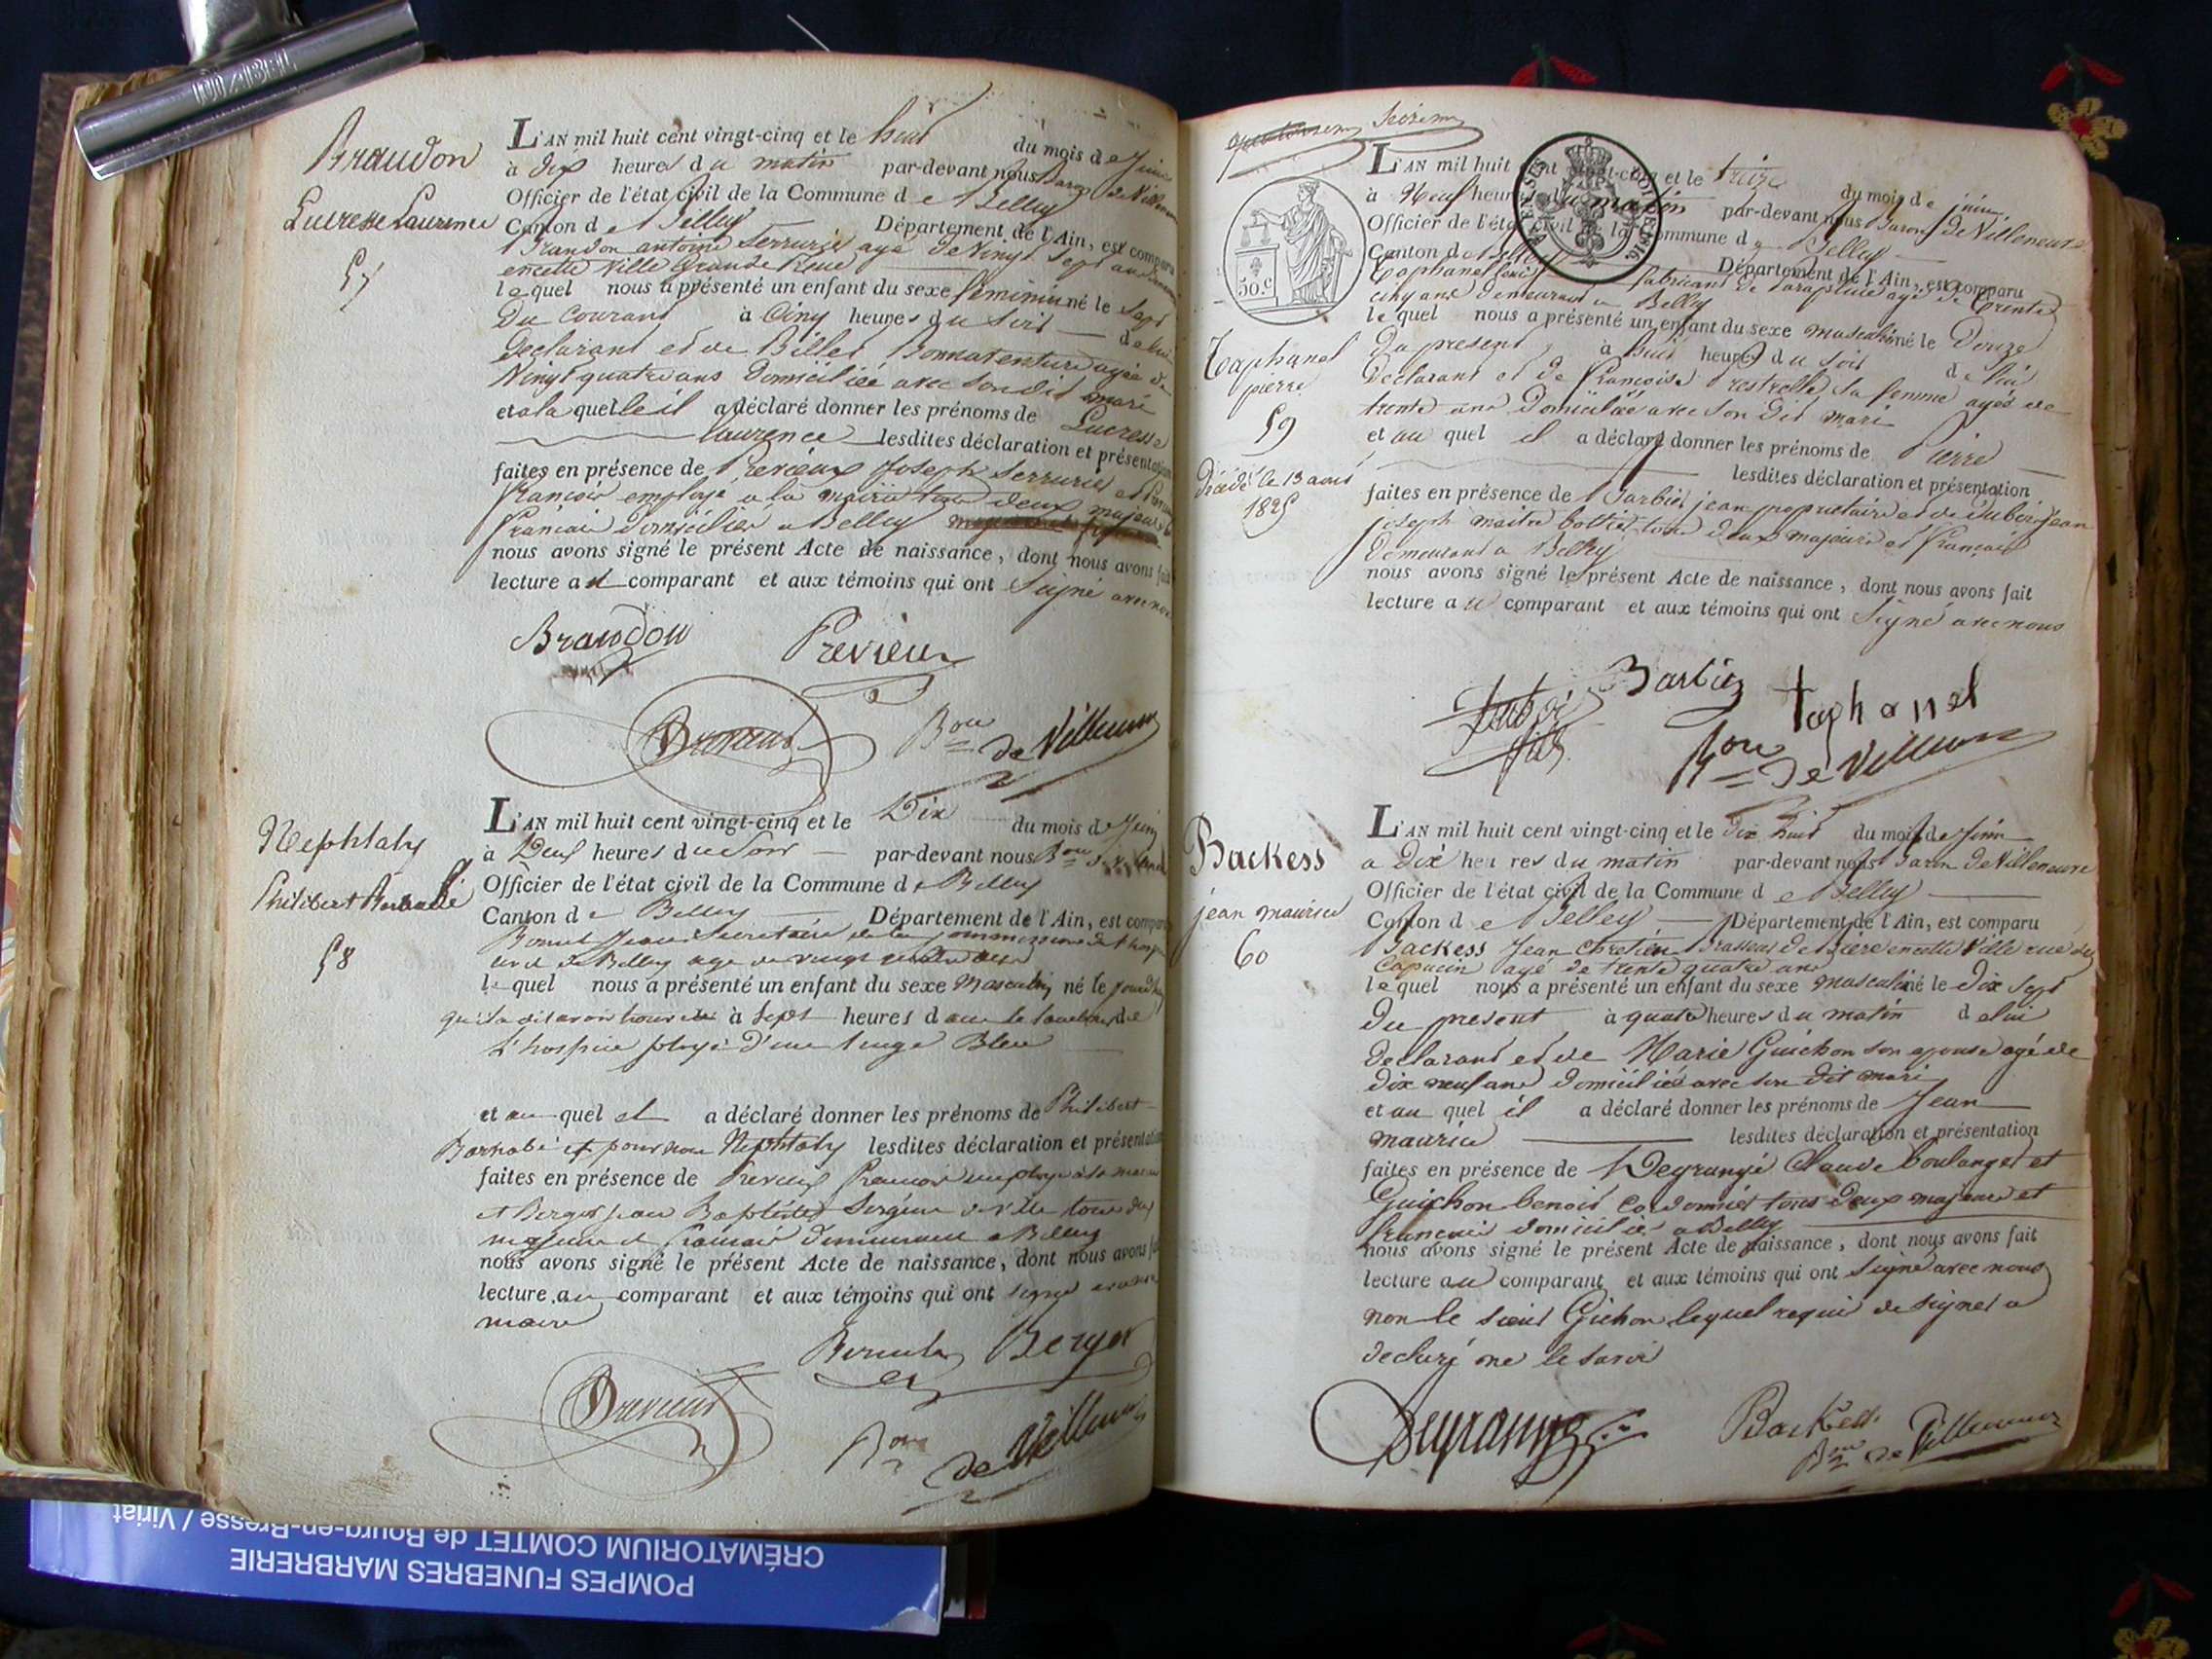 Brandon
Lucresse Laurence
57
L'AN mil huit cent vingt-cinq et le huit du mois de Juin
à dix heures du matin par-devant nous Baron de Villeneuve
Officier de l'état civil de la Commune de Belley
Canton de Belley Département de l'Ain, est comparu
Brandon antoine Serrurier agé de Vingt Sept ans
encette Ville Grande Rue
lequel nous a présenté un enfant du sexe féminin né le Sept
Du Courant à Cinq heures du Soir de lui
Declarant et de Billet Bonnaventure agée de
Vingt quatre ans Domiciliée avec Son dit mari
et a la quelle il a déclaré donner les prénoms de Lucresse
Laurence lesdites déclaration et présentation
faites en présence de Previeux Joseph Serrurier et
françois employé a la mairie tous deux majeurs
français domiciliés a Belley
nous avons signé le présent Acte de naissance, dont nous avons fait
lecture au comparant et aux témoins qui ont Signé avec nous
Brandon Previeux
Bon de Villeneuve
Nephtaly
Philibert Barnabé
58
L'AN mil huit cent vingt-cinq et le Dix du mois de Juin
à Deux heures du Soir par-devant nous Bon de Villeneuve
Officier de l'état civil de la Commune de Belley
Canton de Belley Département de l'Ain, est comparu
Jean Secretaire de la Commission de
de Belley age de vingt
lequel nous a présenté un enfant du sexe Masculin né le jourdhuy
qu'il a dit avoir trouvé à Sept heures dans le tour de
L'hospice ployé d'un linge Bleu
et au quel il a déclaré donner les prénoms de Philibert
Barnabé et pour nom Nephtaly lesdites déclaration et présentation
faites en présence de Previeux François employé à la mairie
et Berger Jean Baptiste Sergent de ville tous deux
majeurs et français demeurant a Belley
nous avons signé le présent Acte de naissance, dont nous avons fait
lecture au comparant et aux témoins qui ont signé avec nous
maire
Berger
Bon de Villeneuve
Seizieme
50.c
Taphanel
pierre
59
Décédé le 13 aout
1825
L'AN mil huit cent vingt-cinq et le treize du mois de juin
à Neuf heures du matin par-devant nous Baron de Villeneuve
Officier de l'état civil de la Commune de Belley
Canton de Belley Département de l'Ain, est comparu
Taphanel Louis fabricant de Parapluie agé de trente
cinq ans demeurant a Belley
lequel nous a présenté un enfant du sexe masculin né le Douze
Du present à huit heures du soir de lui
Declarant et de françoise restrelle sa femme agée de
trente ans Domiciliée avec son dit mari
et au quel il a déclaré donner les prénoms de Pierre
lesdites déclaration et présentation
faites en présence de Barbier jean proprietaire et de Dubois Jean
joseph maitre bottier tous deux majeurs et français
demeurant a Belley
nous avons signé le présent Acte de naissance, dont nous avons fait
lecture au comparant et aux témoins qui ont Signé avec nous
Barbier taphanel
Dubois fils
Bon de Villeneuve
Backess
jean maurice
60
L'AN mil huit cent vingt-cinq et le dix huit du mois de Juin
à Dix heures du matin par-devant nous Baron de Villeneuve
Officier de l'état civil de la Commune de Belley
Canton de Belley Département de l'Ain, est comparu
Backess Jean Chretien Brasseur de Biere encette Ville rue des
Capucin agé de trente quatre ans
lequel nous a présenté un enfant du sexe masculin né le Dix Sept
Du present à quatre heures du matin de lui
Declarant et de Marie Guichon son epouse agé de
dix neuf ans Domiciliée avec son dit mari
et au quel il a déclaré donner les prénoms de Jean
maurice lesdites déclaration et présentation
faites en présence de Degrangé Claude boulanger et
Guichon benoit Cordonnier tous deux majeurs et
francais domicilié a Belley
nous avons signé le présent Acte de naissance, dont nous avons fait
lecture au comparant et aux témoins qui ont signé avec nous
non le sieur Gichon lequel requi de signer a
declaré ne le savoir
Backess
Bon de Villeneuve
POMPES FUNEBRES MARBRERIE
CRÉMATORIUM COMTET de Bourg-en-Bresse / Viriat